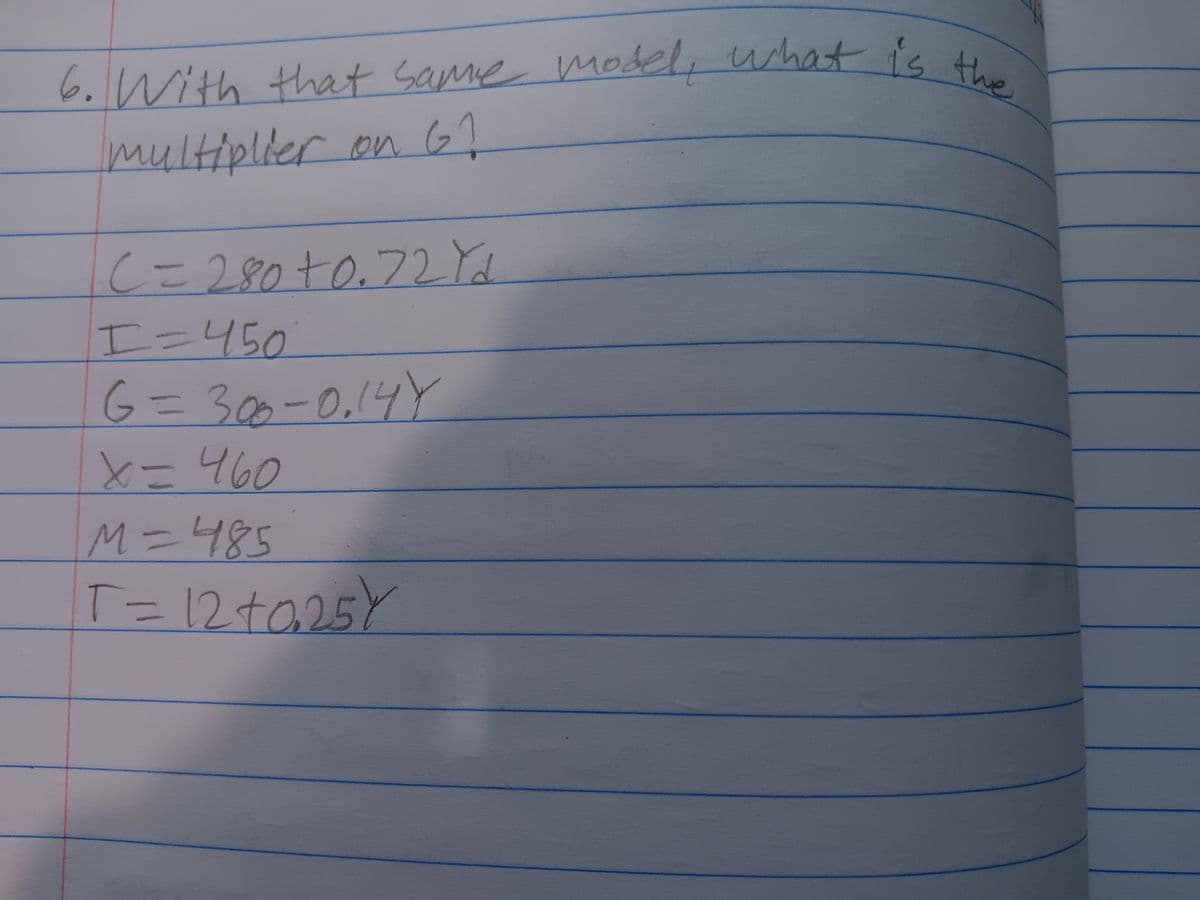 6. With that same model, what is the
multiplier on G?
C = 280 + 0.72Yd
I = 450
G = 300 - 0.14Y
X = 460
M = 485
T = 12 + 0.25Y